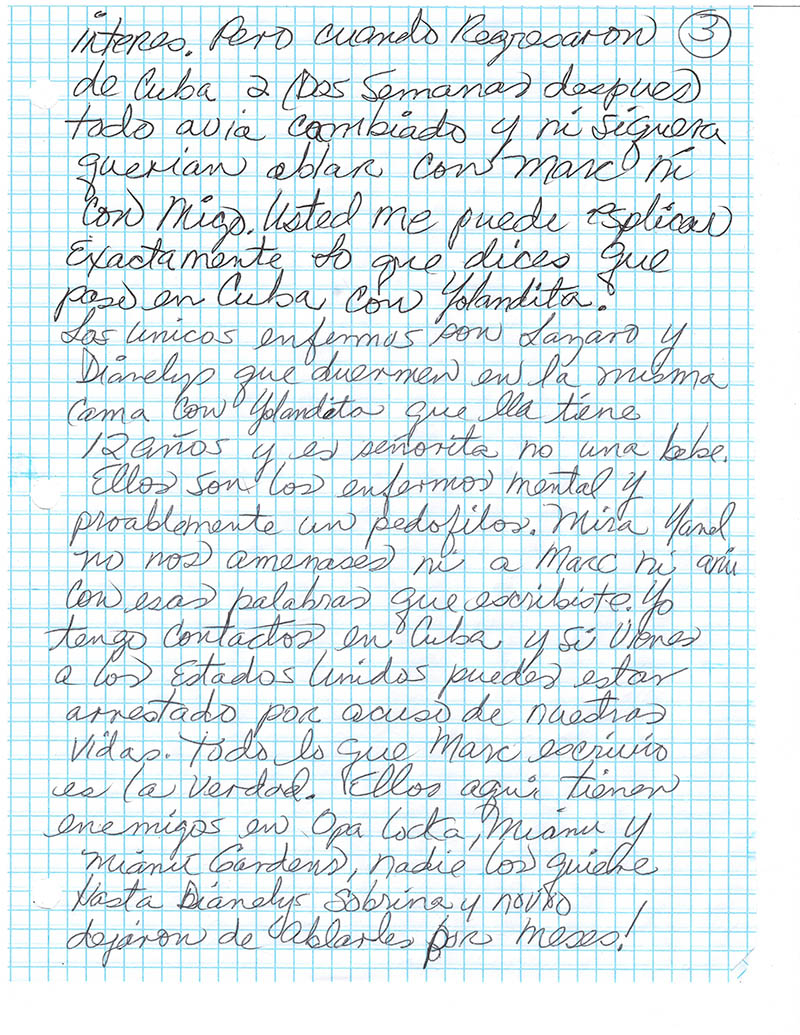 interes. Pero cuando Regresaron 3
de Cuba 2 (Dos Semanas despues)
todo avia cambiado y ni siguera
querian ablar con Marc ni
con Migo. Usted me puede esplicar
Exactamente lo que dices que
paso en Cuba con Yolandita.
Los unicos enfermos son Lazaro y
Dianelys que duermen en la misma
cama con Yolandita que lla tiene
12 años y es señorita no una bebe.
Ellos son los enfermos mental y
proablemente un pedofilos. Mira Yanel
no nos amenases ni a Marc ni ami
con esas palabras que escribiste. Yo
tengo contactos en Cuba y si vienes
a los Estados Unidos puedes estar
arrestado por acuso de nuestras
vidas. todo lo que Marc escrivio
es la verdad. Ellos aqui tienen
enemigos en Opa locka, Miami y
Miami Gardens, nadie los quiere
Hasta Dianelys Sobrina y novio
dejaron de Ablarles por meses!